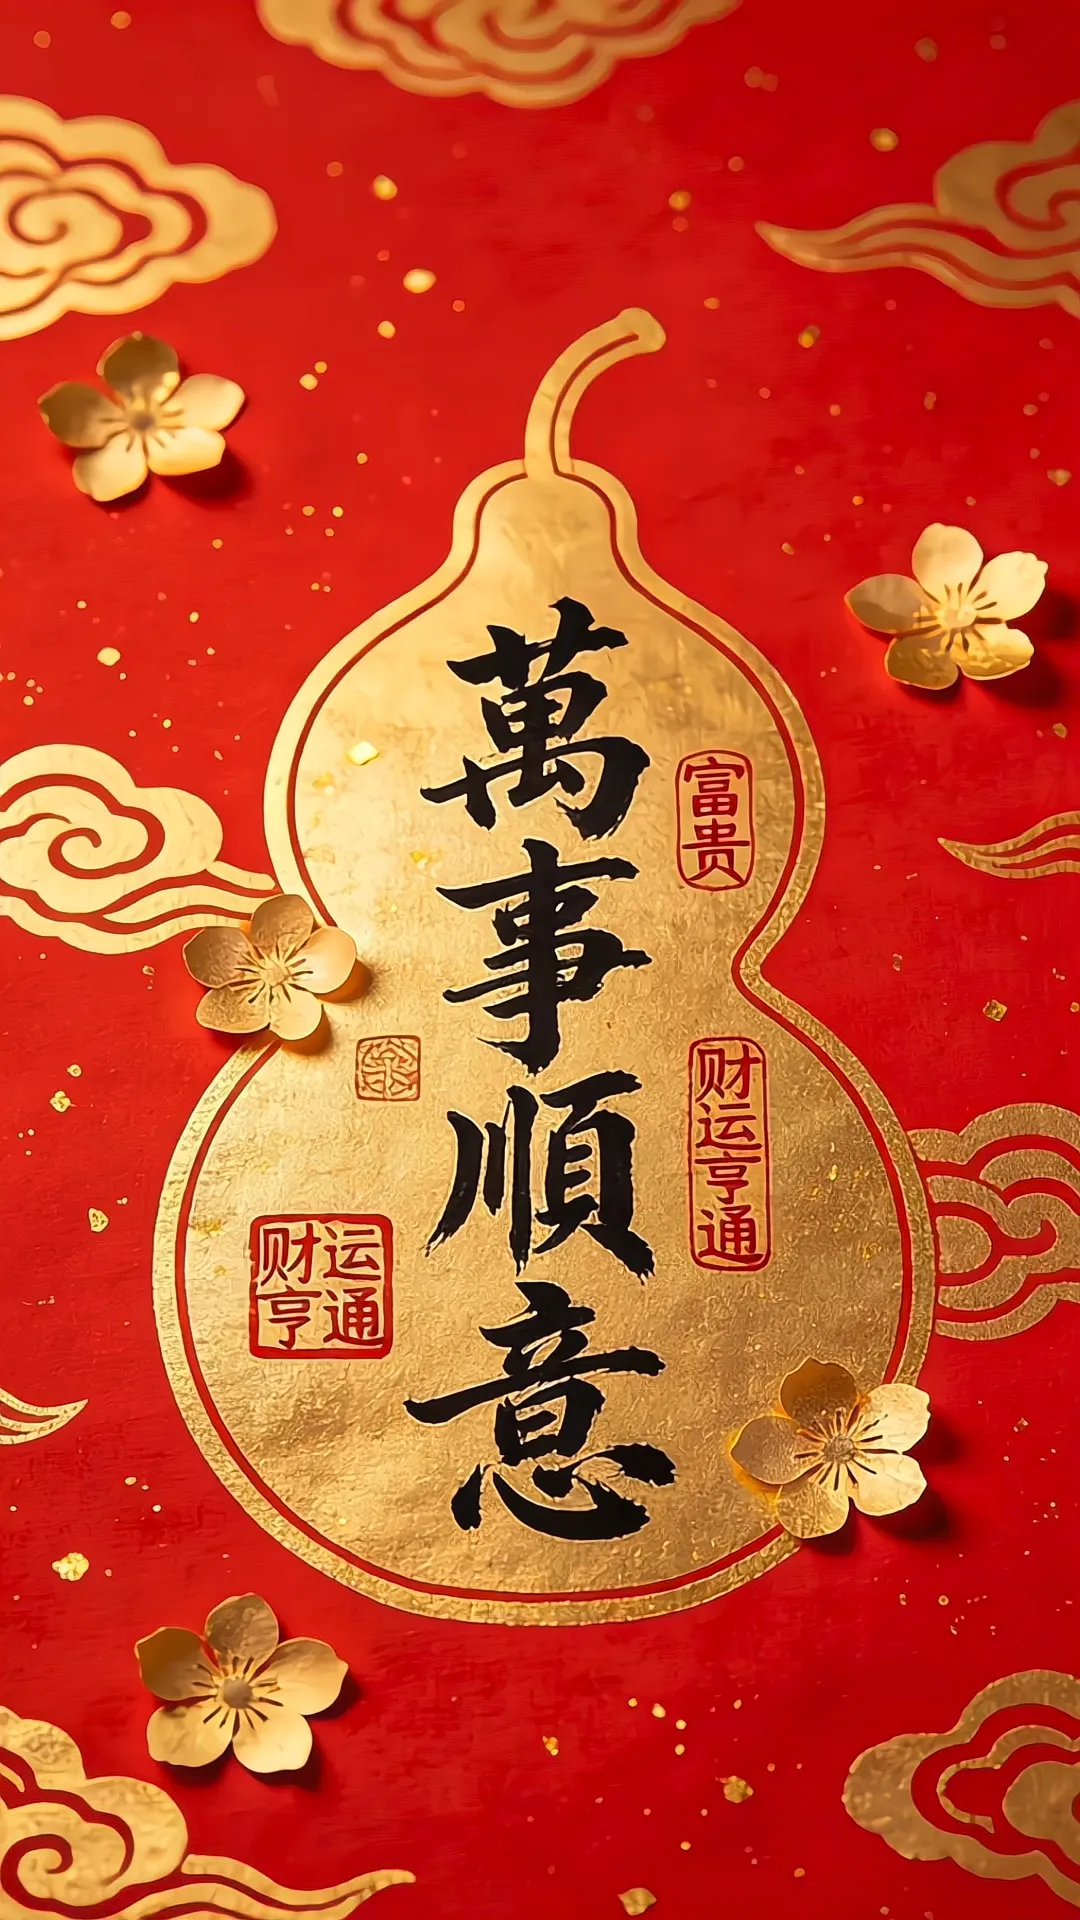 萬事順意
富贵
财运亨通
财运
亨通